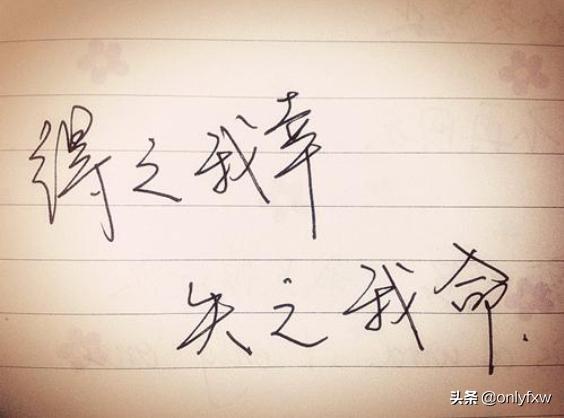 得之我幸
失之我命.
头条 @onlyfxw